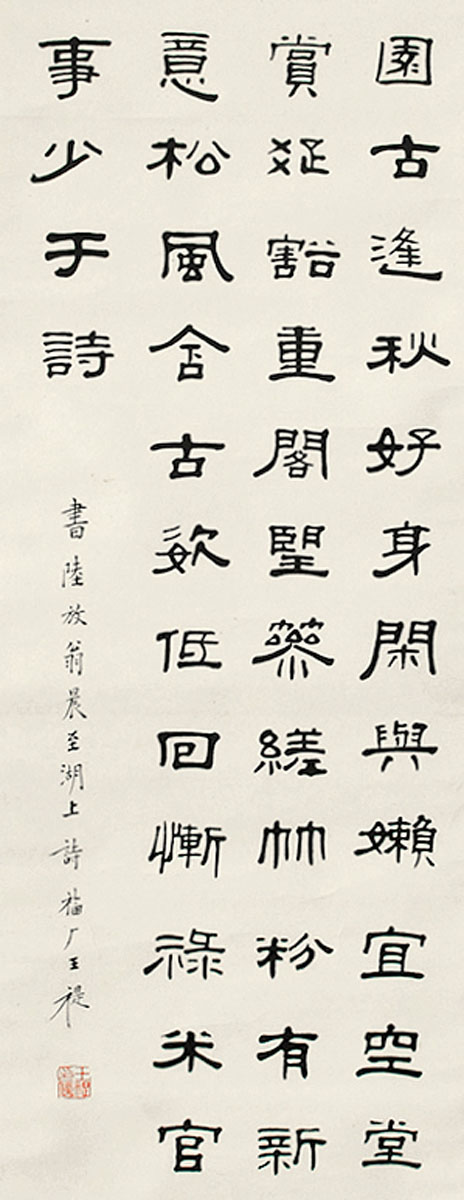 園古逢秋好身閑與嬾宜空堂
賞疏豁重閣朢篸縒竹粉有新
意松風含古姿低回慚祿米官
事少于詩
書陸放翁晨至湖上詩 福厂王禔